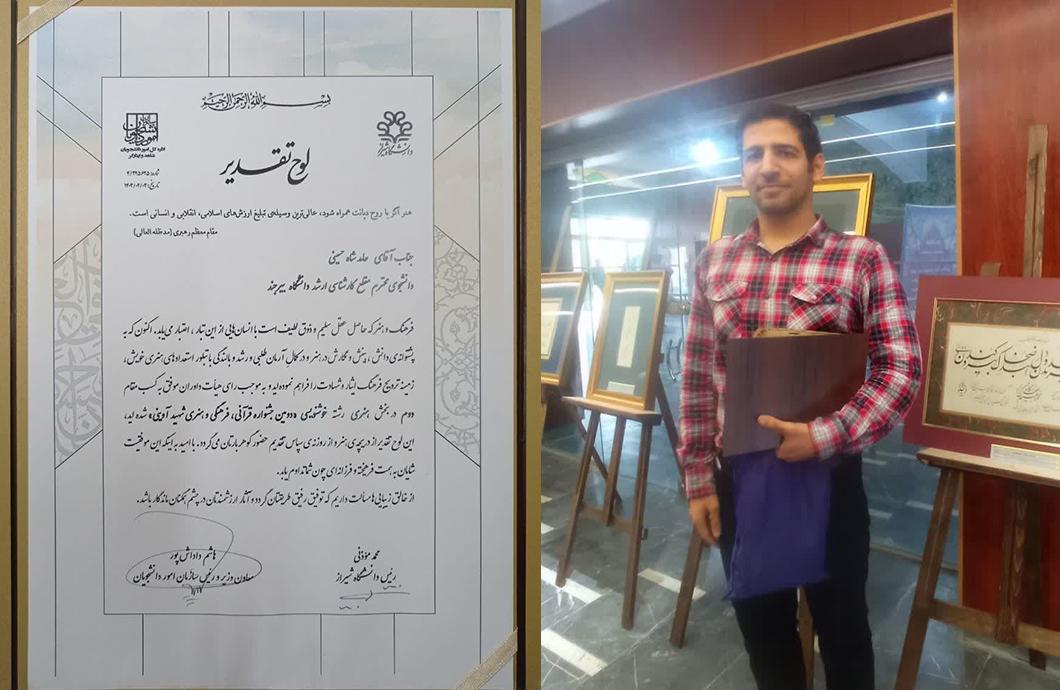 بسم الله الرحمن الرحیم
دانشگاه شیراز
سازمان امور دانشجویان
اداره کل امور دانشجویان
شاهد و ایثارگر
لوح تقدیر
شماره: ۴/۳۹۵۶۴۵
تاریخ: ۱۴۰۲/۰۲/۰۲
هنر اگر با روح دیانت همراه شود، عالی‌ترین وسیله‌ی تبلیغ ارزش‌های اسلامی، انقلابی و انسانی است.
مقام معظم رهبری (مدظله العالی)
جناب آقای حامد شاه حسینی
دانشجوی محترم مقطع کارشناسی ارشد دانشگاه بیرجند
فرهنگ و هنر که حاصل عقل سلیم و ذوق لطیف است با انسان‌هایی از این تبار، اعتبار می‌یابد. اکنون که به
پشتوانه‌ی دانش، بینش و نگارش در هنر و در کمال آرمان طلبی و رشد و بالندگی با تبلور استعدادهای هنری خویش،
زمینه ترویج فرهنگ ایثار و شهادت را فراهم نموده‌اید و به موجب رای هیأت داوران موفق به کسب مقام
دوم در بخش هنری رشته خوشنویسی «دومین جشنواره قرآنی، فرهنگی و هنری شهید آوینی» شده اید،
این لوح تقدیر از دریچه‌ی هنر و از روزنه‌ی سپاس تقدیم حضور گوهربارتان می‌گردد. با امید به اینکه این موفقیت
شایان به همت فرهیخته و فرزانه‌ای چون شما تداوم یابد.
از خالق زیبایی‌ها مسألت داریم که توفیق رفیق طریقتان گردد و آثار ارزشمندتان در چشم همگنان ماندگار باشد.
محمد مؤذنی
رئیس دانشگاه شیراز
هاشم داداش پور
معاون وزیر و رئیس سازمان امور دانشجویان